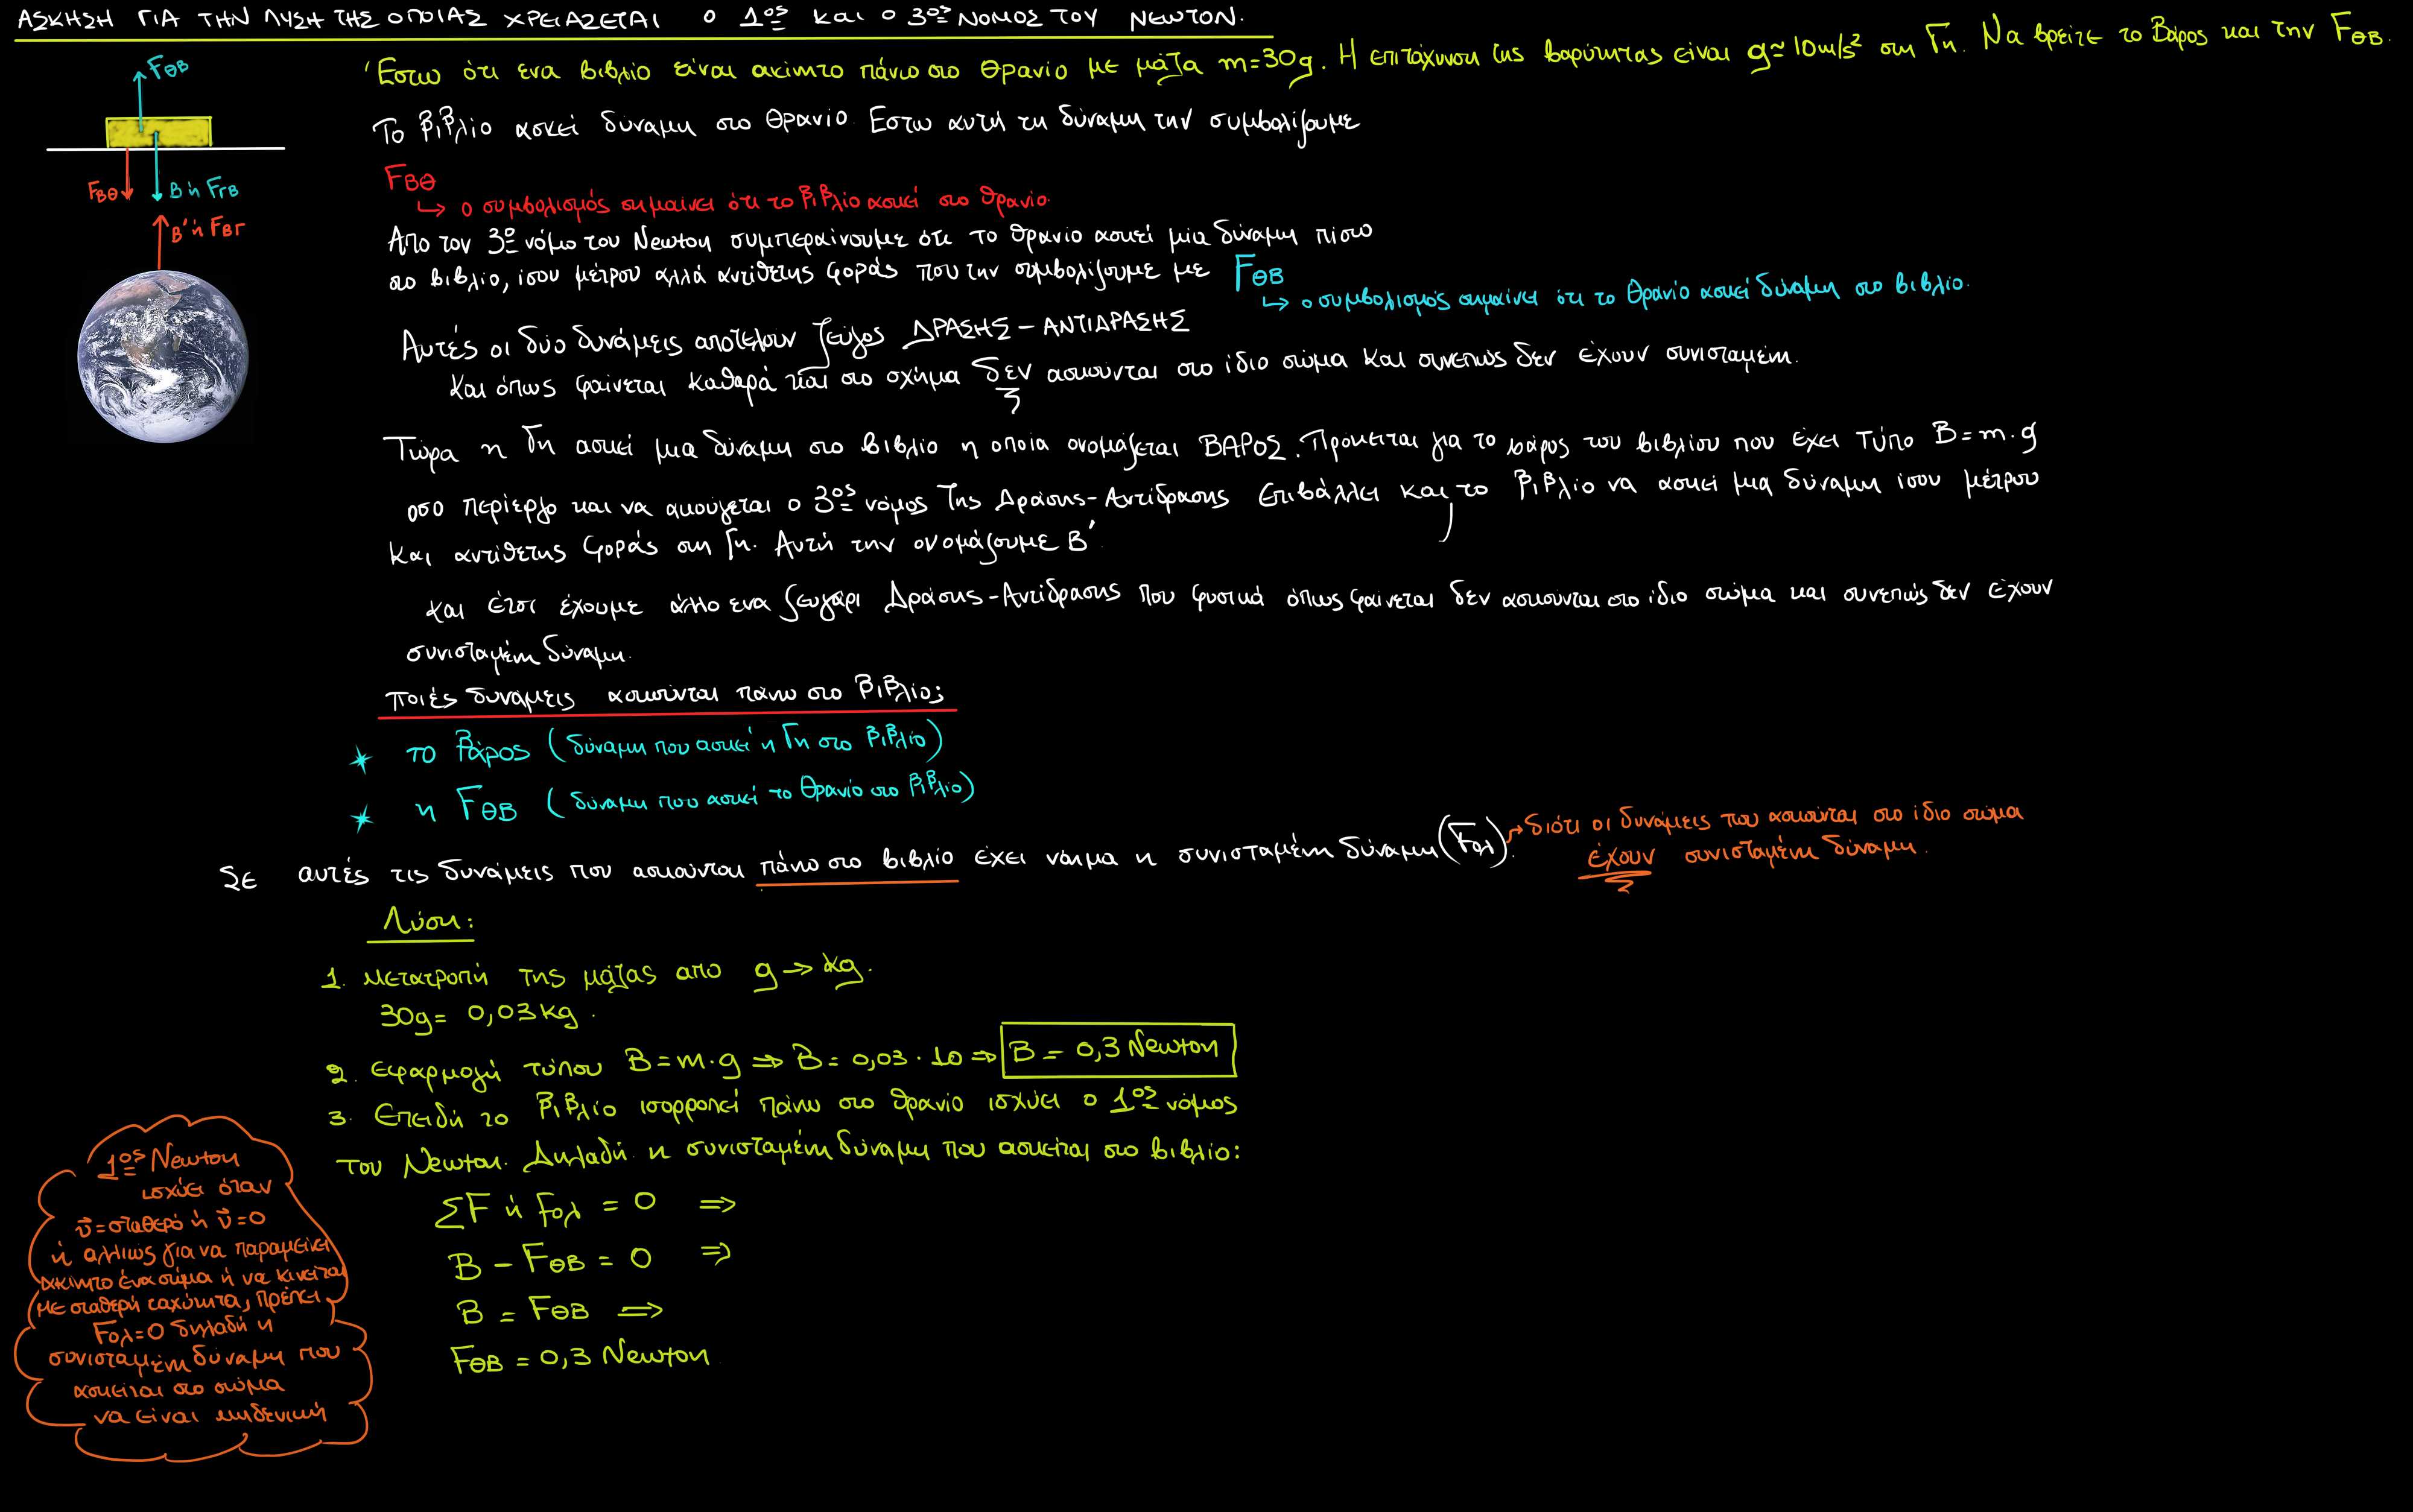 ΑΣΚΗΣΗ ΓΙΑ ΤΗΝ ΛΥΣΗ ΤΗΣ ΟΠΟΙΑΣ ΧΡΕΙΑΖΕΤΑΙ Ο 1ος ΚΑΙ Ο 3ος ΝΟΜΟΣ ΤΟΥ ΝΕΩΤΟΝ.
Έστω ότι ενα βιβλίο είναι ακίνητο πάνω στο θρανίο με μάζα m=30g. Η επιτάχυνση της βαρύτητας είναι g≈10m/s² στη Γη. Να βρείτε το Βάρος και την FΘΒ.
FΘΒ
FΒΘ
Β ή FΓΒ
Β' ή FΒΓ
Το βιβλίο ασκεί δύναμη στο θρανίο. Εστω αυτή τη δύναμη την συμβολίζουμε
FΒΘ
↳ ο συμβολισμός σημαίνει ότι το βιβλίο ασκεί στο θρανίο.
Απο τον 3ο νόμο του Newton συμπεραίνουμε ότι το θρανίο ασκεί μία δύναμη πίσω
στο βιβλίο, ίσου μέτρου αλλά αντίθετης φοράς που την συμβολίζουμε με FΘΒ
↳ ο συμβολισμός σημαίνει ότι το θρανίο ασκεί δύναμη στο βιβλίο.
Αυτές οι δύο δυνάμεις αποτελούν ζεύγος ΔΡΑΣΗΣ – ΑΝΤΙΔΡΑΣΗΣ
και όπως φαίνεται καθαρά και στο σχήμα δεν ασκούνται στο ίδιο σώμα και συνεπώς δεν έχουν συνισταμένη.
Τώρα η Γη ασκεί μια δύναμη στο βιβλίο η οποία ονομάζεται ΒΑΡΟΣ. Πρόκειται για το βάρος του βιβλίου που έχει τύπο Β=m·g
οσο περίεργο και να ακούγεται ο 3ος νόμος της Δράσης-Αντίδρασης επιβάλλει και το βιβλίο να ασκεί μια δύναμη ίσου μέτρου
και αντίθετης φοράς στη Γη. Αυτή την ονομάζουμε Β'
και έτσι έχουμε άλλο ενα ζευγάρι Δράσης-Αντίδρασης που φυσικά όπως φαίνεται δεν ασκούνται στο ίδιο σώμα και συνεπώς δεν έχουν
συνισταμένη δύναμη.
ποιές δυνάμεις ασκούνται πάνω στο βιβλίο;
* το Βάρος (δύναμη που ασκεί η Γη στο βιβλίο)
* η FΘΒ (δύναμη που ασκεί το θρανίο στο βιβλίο)
Σε αυτές τις δυνάμεις που ασκούνται πάνω στο βιβλίο έχει νόημα η συνισταμένη δύναμη (Fολ).
→ διότι οι δυνάμεις που ασκούνται στο ίδιο σώμα
έχουν συνισταμένη δύναμη.
Λύση:
1. μετατροπή της μάζας απο g → kg.
30g = 0,03kg.
2. Εφαρμογή τύπου Β=m·g ⇒ Β = 0,03·10 ⇒ Β = 0,3 Newton
3. Επειδή το βιβλίο ισορροπεί πάνω στο θρανίο ισχύει ο 1ος νόμος
του Newton. Δηλαδή η συνισταμένη δύναμη που ασκείται στο βιβλίο:
ΣF ή Fολ = 0 ⇒
Β – FΘΒ = 0 ⇒
Β = FΘΒ ⇒
FΘΒ = 0,3 Newton
1ος Newton
ισχύει όταν
v⃗=σταθερό ή v⃗=0
ή αλλιώς για να παραμείνει
ακίνητο ένα σώμα ή να κινείται
με σταθερή ταχύτητα, πρέπει
Fολ=0 δηλαδή η
συνισταμένη δύναμη που
ασκείται στο σώμα
να είναι μηδενική